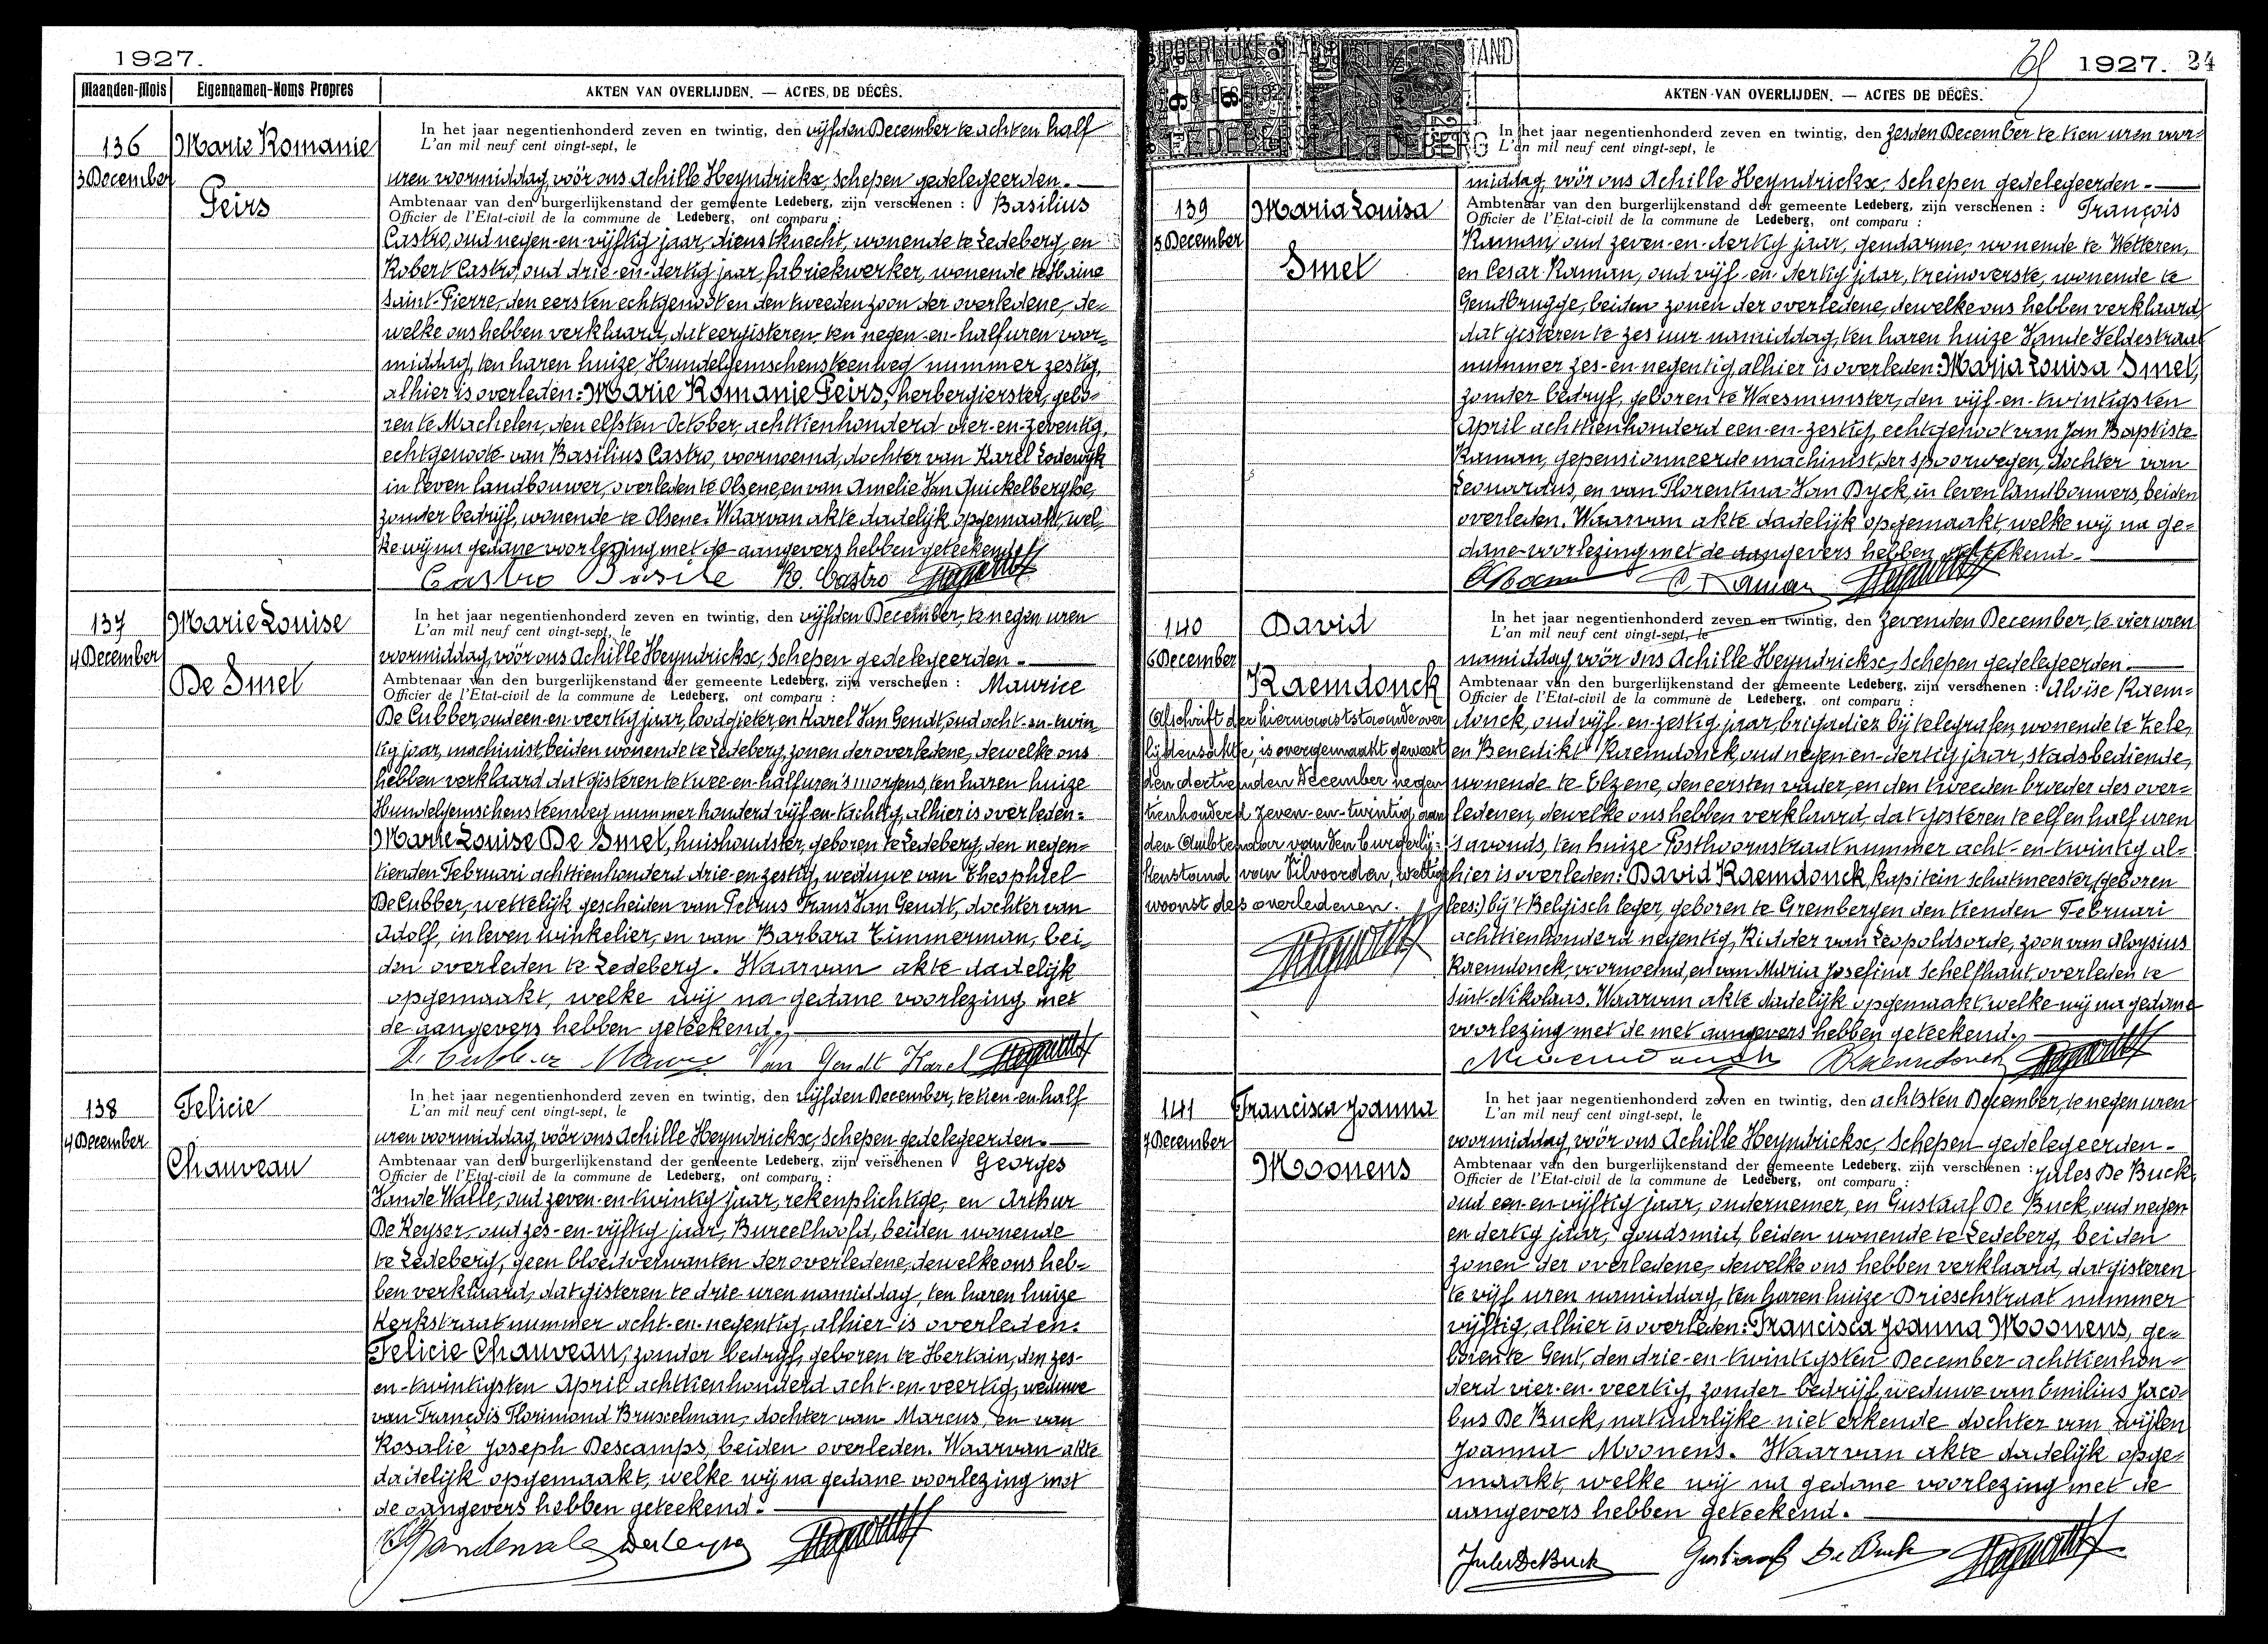 1927.
Maanden-Mois Eigennamen-Noms Propres AKTEN VAN OVERLIJDEN. — ACTES DE DÉCÈS.
136
3 December
Marie Romanie
Peirs
In het jaar negentienhonderd zeven en twintig, den vijfden December te acht en half
L'an mil neuf cent vingt-sept, le
uren voormiddag, vóór ons Achille Heyndrickx, Schepen gedelegeerden.
Ambtenaar van den burgerlijkenstand der gemeente Ledeberg, zijn verschenen : Basilius
Officier de l'Etat-civil de la commune de Ledeberg, ont comparu :
Castro, oud negen-en-vijftig jaar, dienstknecht, wonende te Ledeberg, en
Robert Castro, oud drie-en-dertig jaar, fabriekwerker, wonende te Haine
Saint-Pierre, den eersten echtgenoot en den tweeden zoon der overledene, de-
welke ons hebben verklaard, dat eergisteren, ten negen-en-half uren voor-
middag, ten haren huize, Hundelgemschensteenweg nummer zestig,
alhier is overleden: Marie Romanie Peirs, herbergierster, gebo-
ren te Machelen, den elfsten October, achttienhonderd vier-en-zeventig,
echtgenoote van Basilius Castro, voornoemd, dochter van Karel Lodewijk
in leven landbouwer, overleden te Olsene, en van Amelie Van Quickelberghe,
zonder bedrijf, wonende te Olsene. Waarvan akte dadelijk opgemaakt, wel-
ke wij na gedane voorlezing met de aangevers hebben geteekend.
Castro Basile R. Castro
137
4 December
Marie Louise
De Smet
In het jaar negentienhonderd zeven en twintig, den vijfden December, te negen uren
L'an mil neuf cent vingt-sept, le
voormiddag, vóór ons Achille Heyndrickx, Schepen gedelegeerden.
Ambtenaar van den burgerlijkenstand der gemeente Ledeberg, zijn verschenen : Maurice
Officier de l'Etat-civil de la commune de Ledeberg, ont comparu :
De Cubber, oud een-en-veertig jaar, loodgieter, en Karel Van Gendt, oud acht-en-twin-
tig jaar, machinist, beiden wonende te Ledeberg, zonen der overledene, dewelke ons
hebben verklaard dat gisteren te twee-en-half uren 's morgens, ten haren huize
Hundelgemschensteenweg nummer honderd vijf-en-tachtig, alhier is overleden:
Marie Louise De Smet, huishoudster, geboren te Ledeberg, den negen-
tienden Februari achttienhonderd drie-en-zestig, weduwe van Theophiel
De Cubber, wettelijk gescheiden van Petrus Frans Van Gendt, dochter van
Adolf, in leven winkelier, en van Barbara Timmerman, bei-
den overleden te Ledeberg. Waarvan akte dadelijk
opgemaakt, welke wij na gedane voorlezing met
de aangevers hebben geteekend.
De Cubber Maurice Van Gendt Karel
138
4 December
Felicie
Chauveau
In het jaar negentienhonderd zeven en twintig, den vijfden December, te tien-en-half
L'an mil neuf cent vingt-sept, le
uren voormiddag, vóór ons Achille Heyndrickx, Schepen gedelegeerden.
Ambtenaar van den burgerlijkenstand der gemeente Ledeberg, zijn verschenen Georges
Officier de l'Etat-civil de la commune de Ledeberg, ont comparu :
Vande Walle, oud zeven-en-twintig jaar, rekenplichtige, en Arthur
De Keyser, oud zes-en-vijftig jaar, Bureelhoofd, beiden wonende
te Ledeberg, geen bloedverwanten der overledene, dewelke ons heb-
ben verklaard, dat gisteren te drie uren namiddag, ten haren huize
Kerkstraat nummer acht-en-negentig, alhier is overleden:
Felicie Chauveau, zonder bedrijf, geboren te Hertain, den zes-
en-twintigsten April achttienhonderd acht-en-veertig, weduwe
van François Florimond Brusselman, dochter van Marcus, en van
Rosalie Joseph Descamps, beiden overleden. Waarvan akte
dadelijk opgemaakt, welke wij na gedane voorlezing met
de aangevers hebben geteekend.
Vandewalle De Keyser
1927. 24
AKTEN VAN OVERLIJDEN. — ACTES DE DÉCÈS.
139
5 December
Maria Louisa
Smet
In het jaar negentienhonderd zeven en twintig, den zesden December te tien uren voor-
L'an mil neuf cent vingt-sept, le
middag, vóór ons Achille Heyndrickx, Schepen gedelegeerden.
Ambtenaar van den burgerlijkenstand der gemeente Ledeberg, zijn verschenen : François
Officier de l'Etat-civil de la commune de Ledeberg, ont comparu :
Raman, oud zeven-en-dertig jaar, gendarme, wonende te Wetteren,
en Cesar Raman, oud vijf-en-dertig jaar, treinoverste, wonende te
Gendbrugge, beiden zonen der overledene, dewelke ons hebben verklaard,
dat gisteren te zes uur namiddag, ten haren huize Vande Veldestraat
nummer zes-en-negentig, alhier is overleden: Maria Louisa Smet,
zonder bedrijf, geboren te Waesmunster, den vijf-en-twintigsten
April achttienhonderd een-en-zestig, echtgenoot van Jan Baptiste
Raman, gepensionneerde machinist der spoorwegen, dochter van
Leonardus, en van Florentina Van Dyck, in leven landbouwers, beiden
overleden. Waarvan akte dadelijk opgemaakt, welke wij na ge-
dane voorlezing met de aangevers hebben geteekend.
C. Raman
140
6 December
David
Raemdonck
Afschrift der hiernevenstaande over
lijdensakte, is overgemaakt geweest
den dertienden December negen
tienhonderd zeven-en-twintig, aan
den Ambtenaar van den burgerlij-
kenstand van Vilvoorden, wettige
woonst des overledenen.
In het jaar negentienhonderd zeven en twintig, den zevenden December, te vier uren
L'an mil neuf cent vingt-sept, le
namiddag, vóór ons Achille Heyndrickx, Schepen gedelegeerden.
Ambtenaar van den burgerlijkenstand der gemeente Ledeberg, zijn verschenen : Aloïse Raem-
Officier de l'Etat-civil de la commune de Ledeberg, ont comparu :
donck, oud vijf-en-zestig jaar, brigadier bij telegrafen, wonende te Zele,
en Benedikt Raemdonck, oud negen-en-dertig jaar, stadsbediende,
wonende te Elzene, den eersten vader, en den tweeden broeder des over-
ledenen, dewelke ons hebben verklaard, dat gisteren te elf en half uren
's avonds, ten huize Posthoornstraat nummer acht-en-twintig al-
hier is overleden: David Raemdonck, kapitein schatmeester (geboren
lees:) bij 't Belgisch leger, geboren te Grembergen den tienden Februari
achttienhonderd negentig, Ridder van Leopoldsorde, zoon van Aloysius
Raemdonck, voornoemd, en van Maria Josefina Schelfhaut, overleden te
Sint-Nikolaas. Waarvan akte dadelijk opgemaakt welke wij na gedane
voorlezing met de met aangevers hebben geteekend.
Raemdonck
141
7 December
Francisca Joanna
Moonens
In het jaar negentienhonderd zeven en twintig, den achtsten December, te negen uren
L'an mil neuf cent vingt-sept, le
voormiddag, vóór ons Achille Heyndrickx, Schepen gedelegeerden.
Ambtenaar van den burgerlijkenstand der gemeente Ledeberg, zijn verschenen : Jules De Buck,
Officier de l'Etat-civil de la commune de Ledeberg, ont comparu :
oud een-en-vijftig jaar, ondernemer, en Gustaaf De Buck, oud negen
en dertig jaar, goudsmid, beiden wonende te Ledeberg, beiden
zonen der overledene, dewelke ons hebben verklaard, dat gisteren
te vijf uren namiddag, ten haren huize Drieschstraat nummer
vijftig, alhier is overleden: Francisca Joanna Moonens, ge-
boren te Gent, den drie-en-twintigsten December achttienhon-
derd vier-en-veertig, zonder bedrijf, weduwe van Emilius Jaco-
bus De Buck, natuurlijke niet erkende dochter van wijlen
Joanna Moonens. Waarvan akte dadelijk opge-
maakt, welke wij na gedane voorlezing met de
aangevers hebben geteekend.
Jules De Buck Gustaaf De Buck